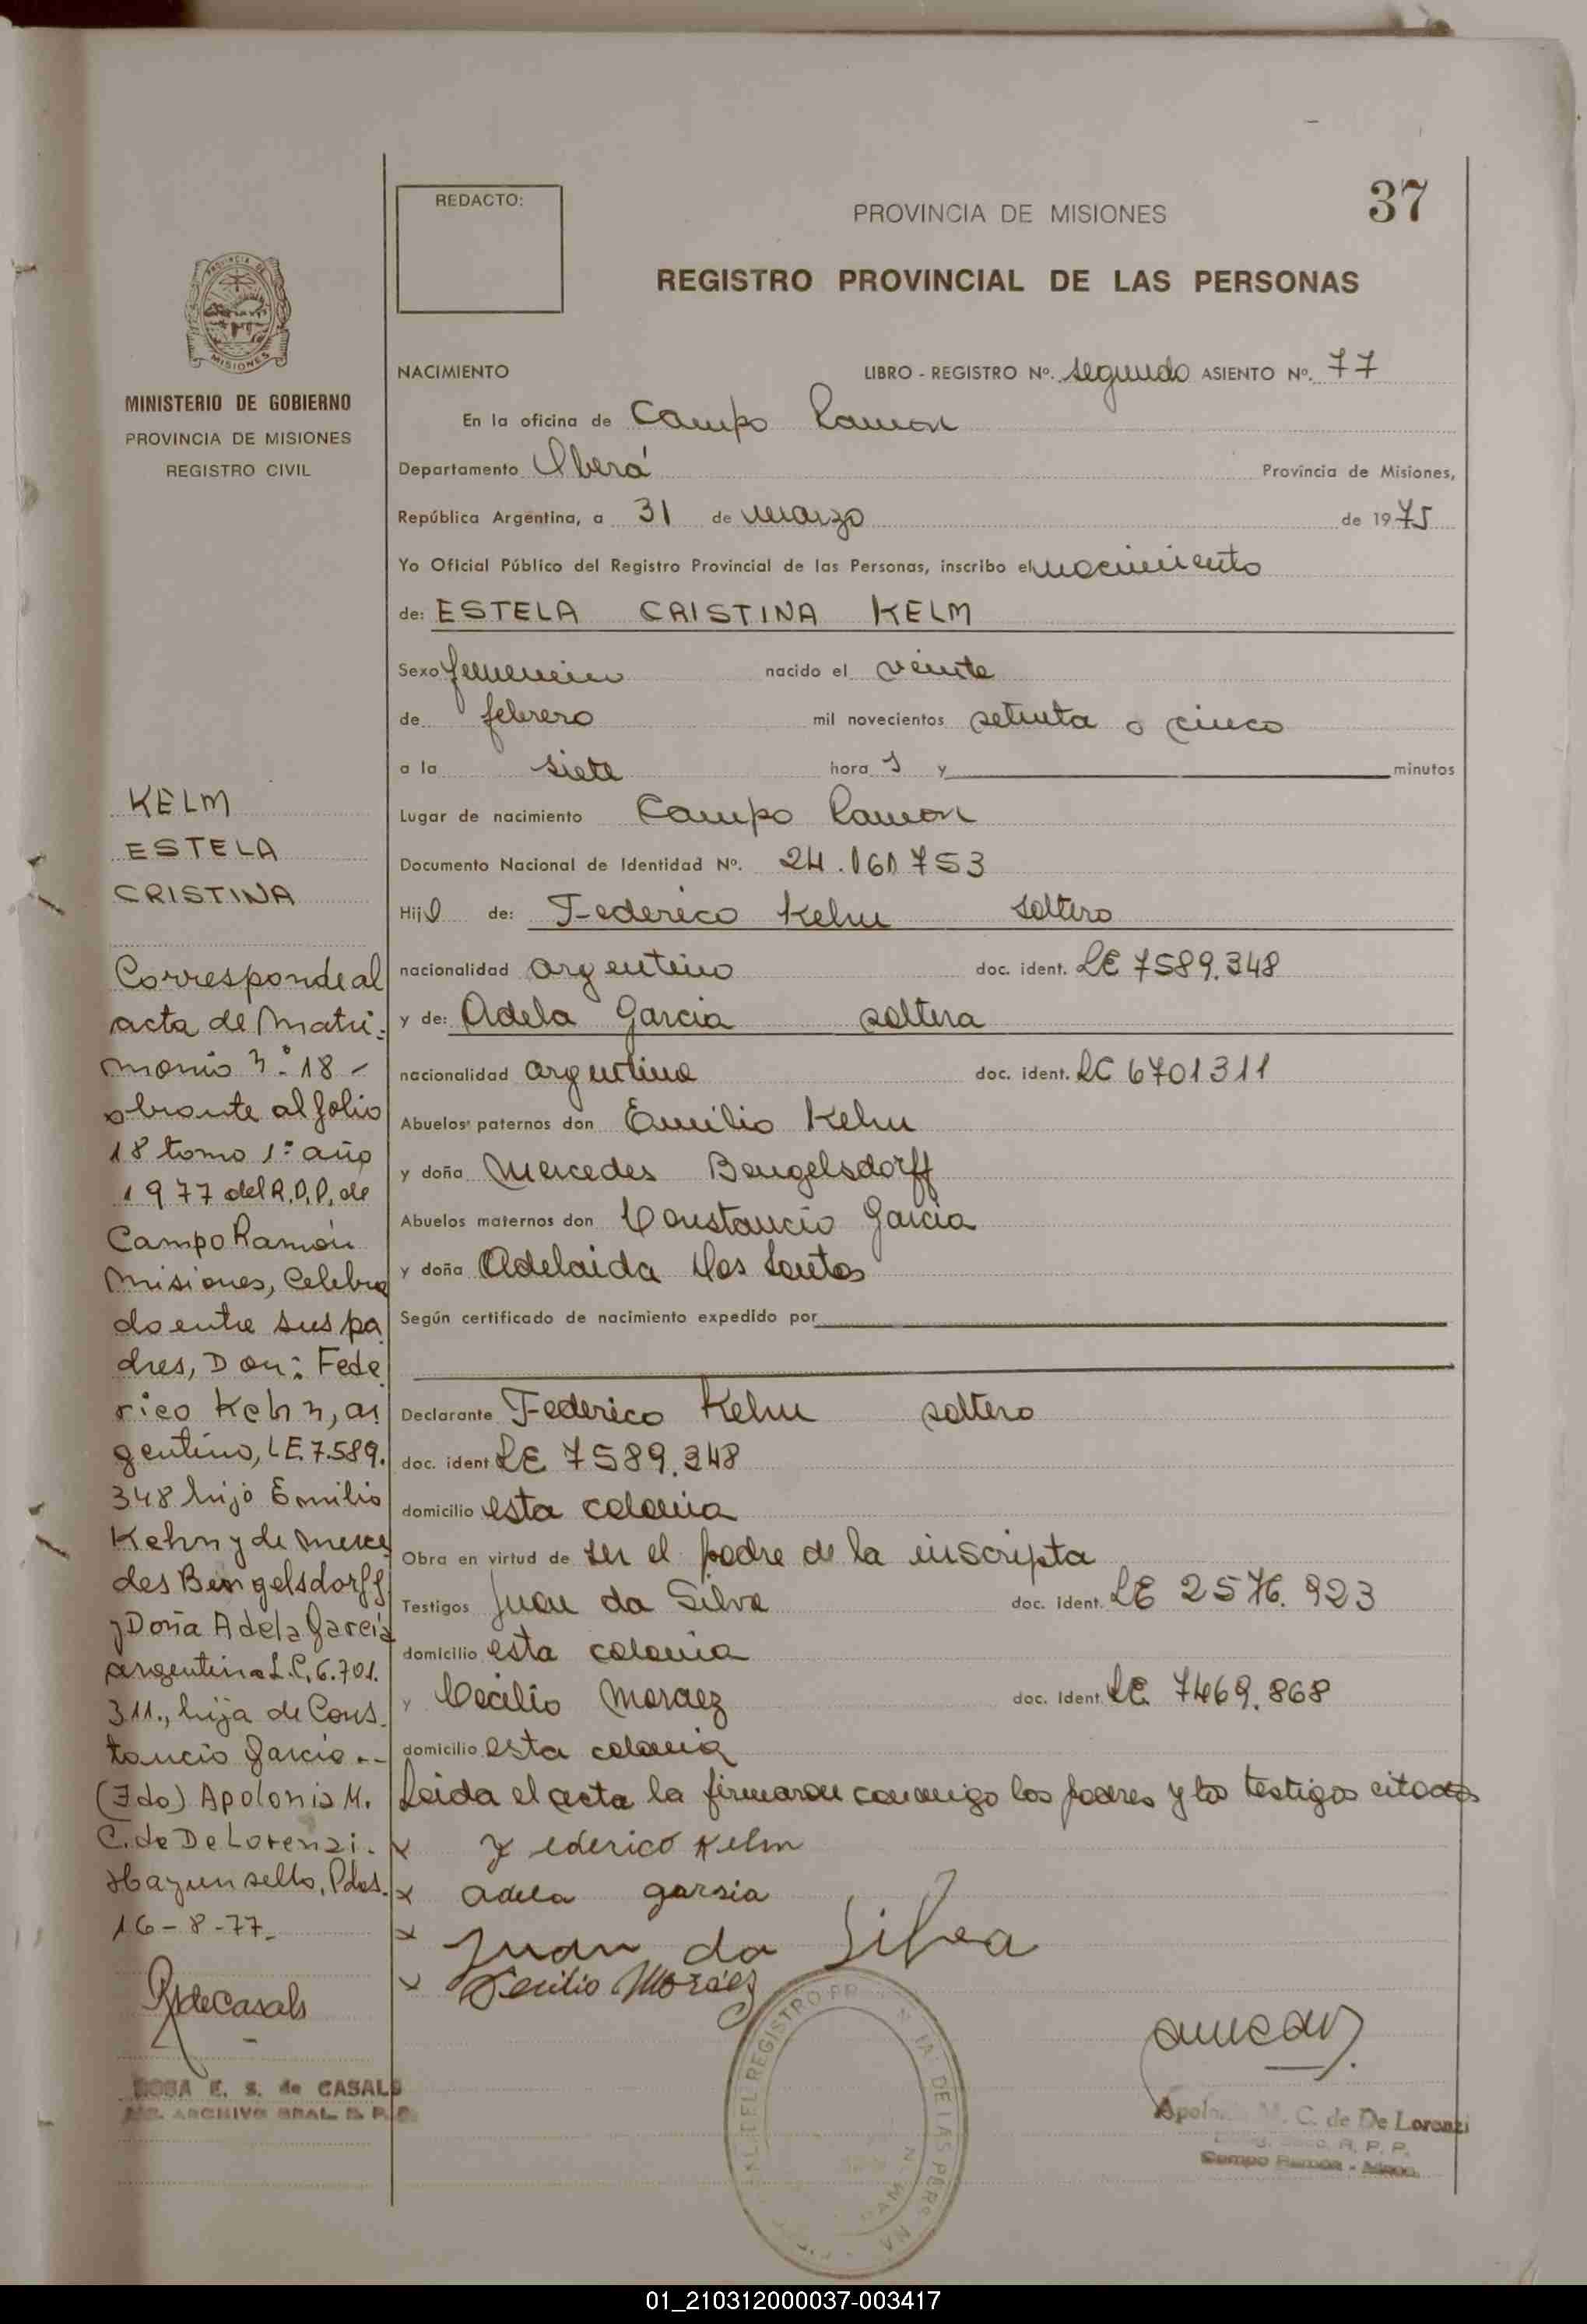 37
REDACTO:
PROVINCIA DE MISIONES
REGISTRO PROVINCIAL DE LAS PERSONAS
PROVINCIA DE
MISIONES
MINISTERIO DE GOBIERNO
PROVINCIA DE MISIONES
REGISTRO CIVIL
NACIMIENTO LIBRO - REGISTRO Nº. segundo ASIENTO Nº. 77
En la oficina de Campo Ramon
Departamento Oberá Provincia de Misiones,
República Argentina, a 31 de marzo de 1975
Yo Oficial Público del Registro Provincial de las Personas, inscribo el nacimiento
de: ESTELA CRISTINA KELM
Sexo femenino nacido el veinte
de febrero mil novecientos setenta y cinco
a la siete hora s y minutos
Lugar de nacimiento Campo Ramon
Documento Nacional de Identidad Nº. 24.060753
Hija de: Federico Kelm soltero
nacionalidad argentino doc. ident. LE 7589.348
y de: Adela Garcia soltera
nacionalidad argentina doc. ident. LC 6701311
Abuelos paternos don Emilio Kelm
y doña Mercedes Bengelsdorff
Abuelos maternos don Constancio Garcia
y doña Adelaida Dos Santos
Según certificado de nacimiento expedido por
Declarante Federico Kelm soltero
doc. ident LE 7589.348
domicilio esta colonia
Obra en virtud de ser el padre de la inscripta
Testigos Juan da Silva doc. ident. LE 2576.923
domicilio esta colonia
y Cecilio Moraez doc. Ident. LE. 7469.868
domicilio esta colonia
Leida el acta la firmaron conmigo los padres y los testigos citados
x Federico Kelm
x adela garsia
x Juan da Silva
x Cecilio Moráez
KELM
ESTELA
CRISTINA
Corresponde al
acta de Matri-
monio nº 18 -
obrante al folio
18 tomo 1º año
1977 del R.P.P. de
Campo Ramón
Misiones, Celebra
do entre sus pa
dres, Don: Fede
rico Kehn, ar
gentino, LE. 7.589.
348 hijo Emilio
Kehn y de Merce
des Bengelsdorff
y Doña Adela García
argentina L.C. 6.701.
311., hija de Cons
tancio Garcia.--
(Fdo) Apolonia M.
C. de De Lorenzi.
Hay un sello, Pdas.
16-8-77.
RdeCasals
ROSA E. S. de CASALS
ARCHIVO GRAL. R. P. P.
DEL REGISTRO DE LAS
Apolonia M. C. de De Lorenzi
R. P. P.
Campo Ramón - Mnes.
01_210312000037-003417